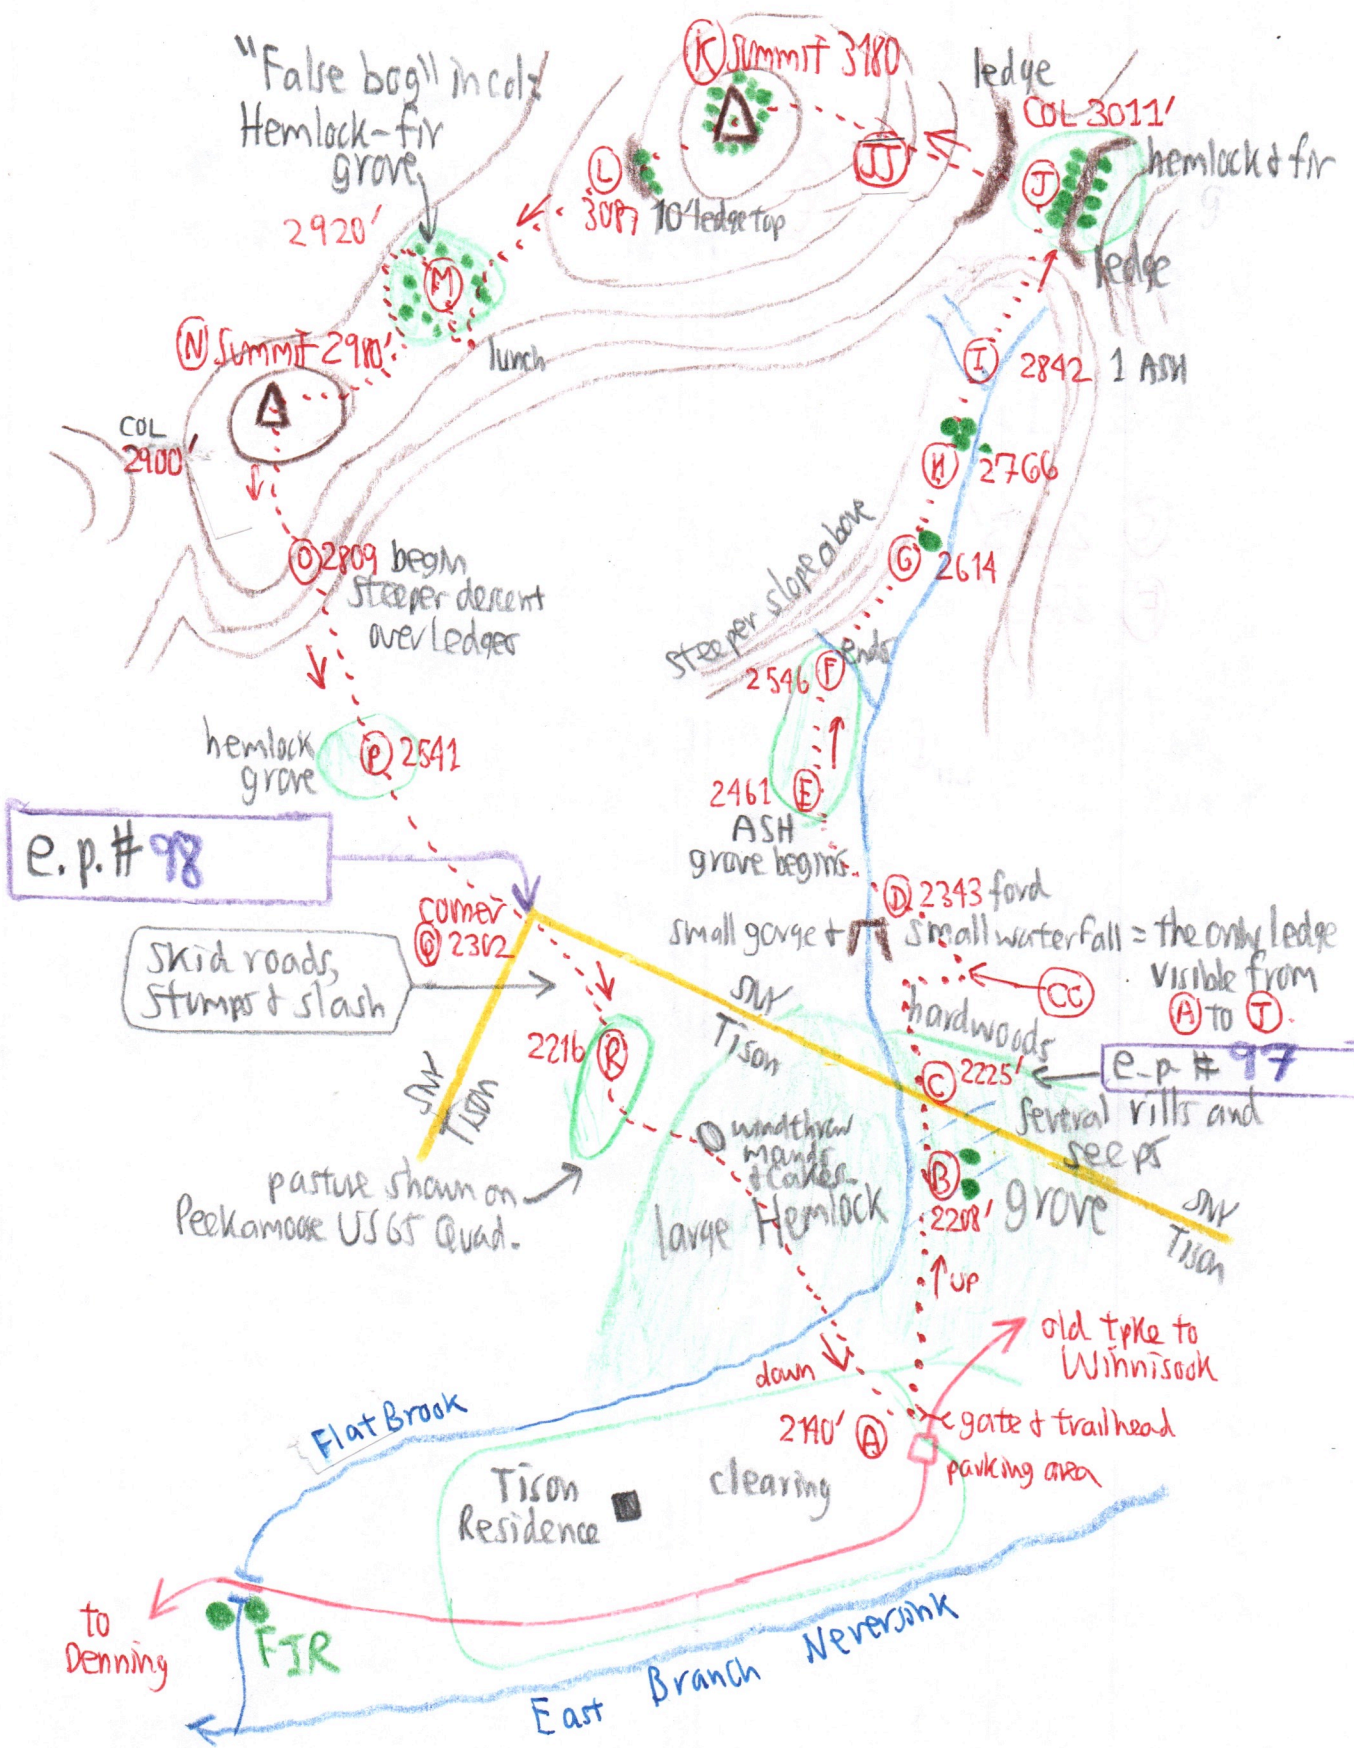 "False bog" in col:
Hemlock-fir
grove
2920'
K Summit 3180
ledge
COL 3011'
hemlock & fir
J
JJ
ledge
L
3087
10' ledge top
M
lunch
N Summit 2980'
COL
2900'
I 2842 1 ASH
H 2766
G 2614
steeper slope above
O 2809 begin
steeper descent
over ledges
ends
2546 F
hemlock
grove
P 2541
2461 E
ASH
grove begins
e.p.# 98
corner
Q 2302
D 2343 ford
small gorge &
small waterfall = the only ledge
visible from
A to J.
CC
Skid roads,
stumps & slash
SNY
Tison
hardwoods
2216 R
C 2225'
e.p.# 97
several rills and
seeps
SNY
Tison
windthrow
pasture shown on
Peekamoose USGS Quad.
large Hemlock
B
2208'
grove
SNY
Tison
UP
old tpke to
Winnisook
down
Flat Brook
2140' A
gate & trailhead
parking area
Tison
Residence
clearing
to
Denning
FIR
East Branch Neversink